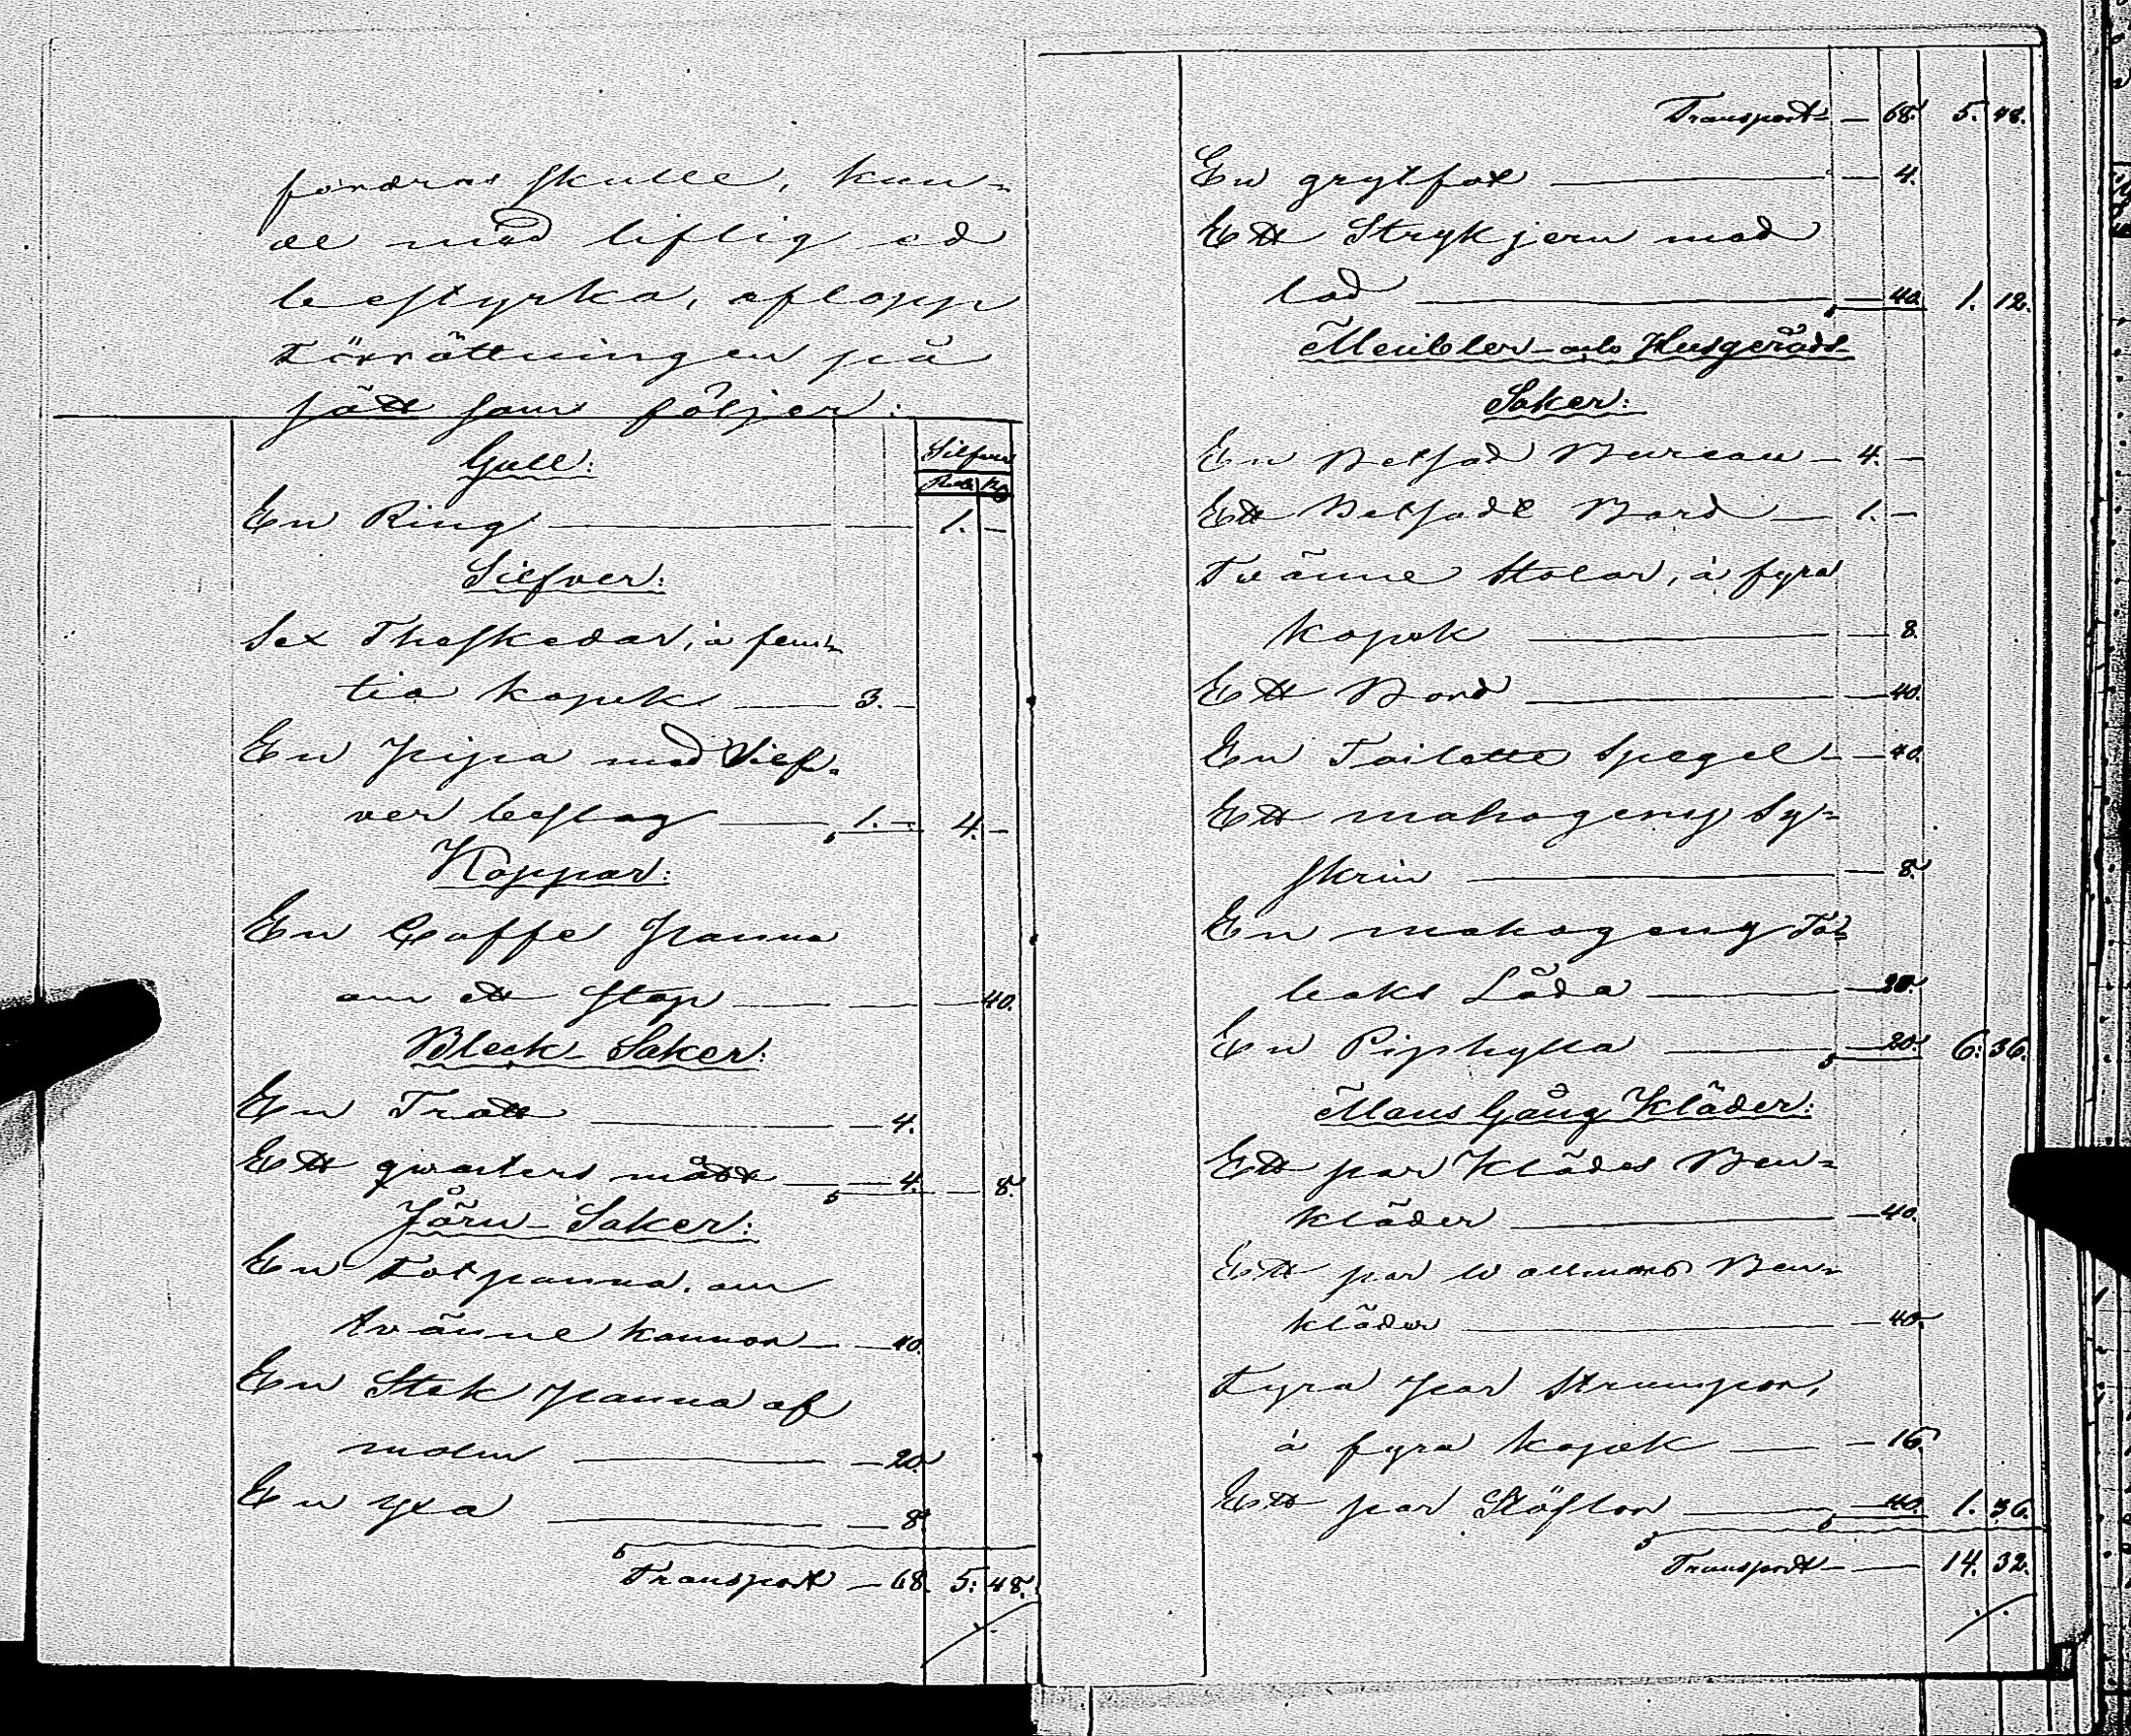 fordras skulle, kun-
de med liflig ed
bestyrka, aflopp
Förrättningen på
sätt som följer:
Silfver
Rub. K.
Gull:
En Ring — — 1. —
Silfver:
Sex Theskedar, à fem-
tio kopek — 3. —
En Pipa med Silf-
ver beslag — 1. — 4. —
Koppar:
En Caffe Panna
om ett stop — — — 40.
Bleck-Saker:
En Tratt — — 4.
Ett qvarters mått — — 4. — 8.
Järn-Saker:
En Fotpanna, om
tvänne kannor — — 40.
En Stek Panna af
malm — — 20.
En yxa — — 8.
Transport — 68. 5. 48.
Transport — 68. 5. 48.
En grytfot — — 4.
Ett Strykjern med
lod — — 40. 1. 12.
Meubler- och Husgeråds-
Saker:
En Betsad Bureau — 4. —
Ett Betsadt Bord — 1. —
Tvänne Stolar, à fyra
kopek — — 8.
Ett Bord — — 40.
En Toilette Spegel — — 40.
Ett mahogeny Sy-
skrin — — 8.
En mahogeny To-
baks Låda — — 20.
En Piphylla — — 20. 6. 36.
Mans Gång Kläder:
Ett par Klädes Ben-
kläder — — 40.
Ett par Wallmans Ben-
kläder — — 40.
Fyra par Strumpor,
à fyra kopek — — 16.
Ett par Stöflor — — 40. 1. 36.
Transport — — 14. 32.